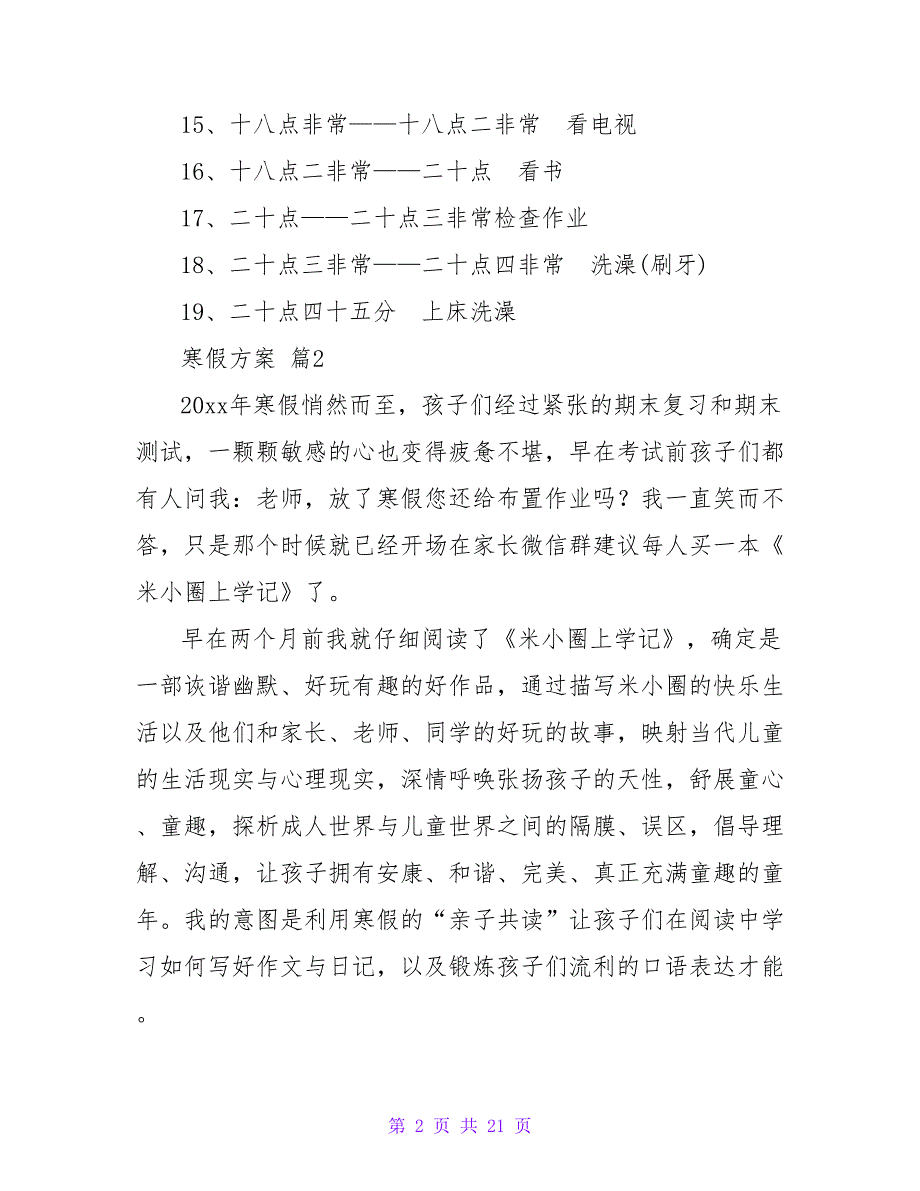 15、十八点非常——十八点二非常　看电视
16、十八点二非常——二十点　看书
17、二十点——二十点三非常检查作业
18、二十点三非常——二十点四非常　洗澡(刷牙)
19、二十点四十五分　上床洗澡
寒假方案 篇2
20xx年寒假悄然而至，孩子们经过紧张的期末复习和期末
测试，一颗颗敏感的心也变得疲惫不堪，早在考试前孩子们都
有人问我：老师，放了寒假您还给布置作业吗？我一直笑而不
答，只是那个时候就已经开场在家长微信群建议每人买一本《
米小圈上学记》了。
早在两个月前我就仔细阅读了《米小圈上学记》，确定是
一部诙谐幽默、好玩有趣的好作品，通过描写米小圈的快乐生
活以及他们和家长、老师、同学的好玩的故事，映射当代儿童
的生活现实与心理现实，深情呼唤张扬孩子的天性，舒展童心
、童趣，探析成人世界与儿童世界之间的隔膜、误区，倡导理
解、沟通，让孩子拥有安康、和谐、完美、真正充满童趣的童
年。我的意图是利用寒假的“亲子共读”让孩子们在阅读中学
习如何写好作文与日记，以及锻炼孩子们流利的口语表达才能
。
第 2 页 共 21 页